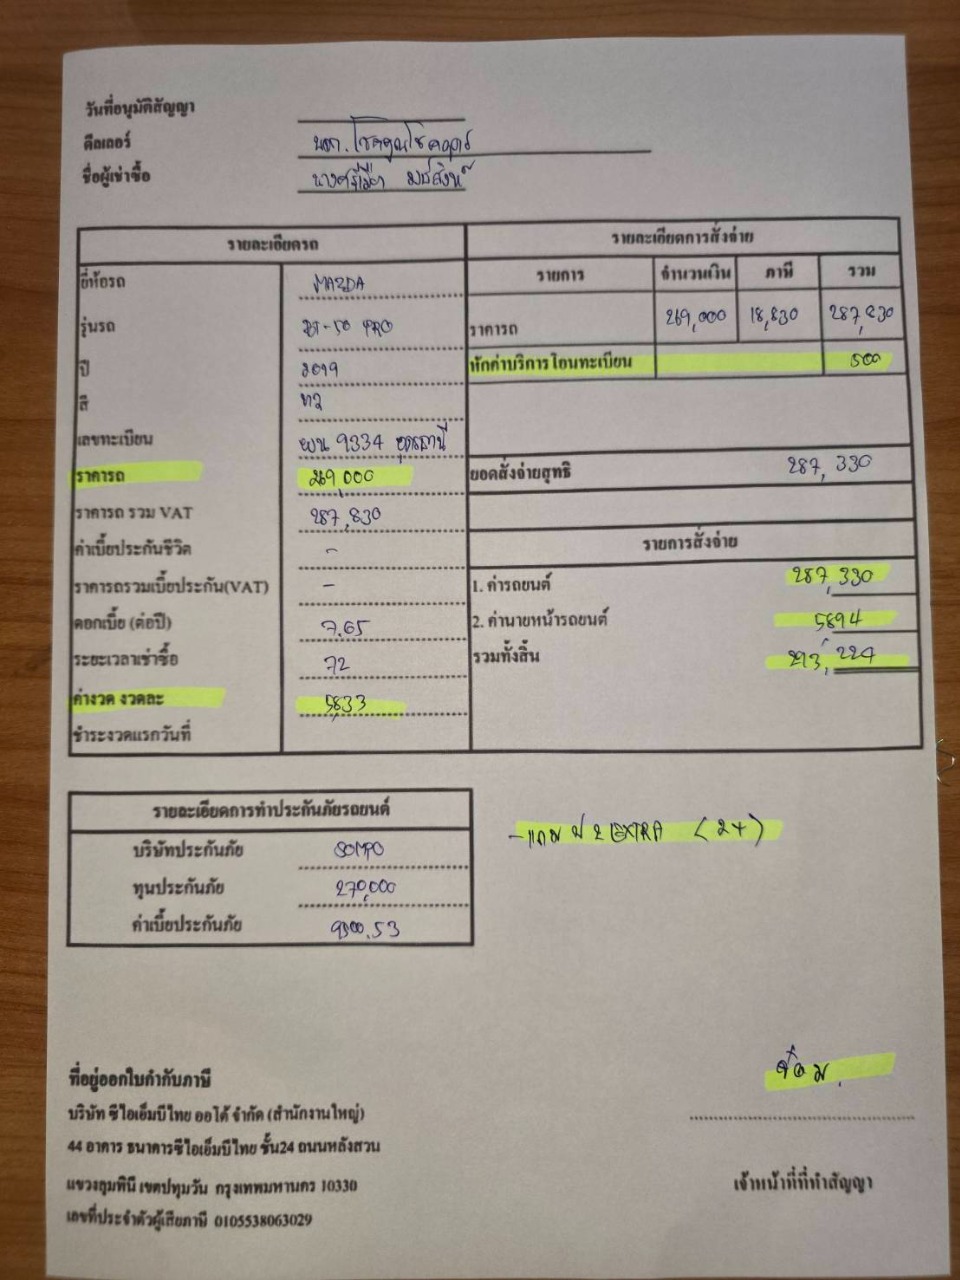 วันที่อนุมัติสัญญา
ดีลเลอร์
ชื่อผู้เช่าซื้อ
รายละเอียดรถ
ยี่ห้อรถ MAZDA
รุ่นรถ BT-50 PRO
ปี 2019
สี เทา
เลขทะเบียน ผน 9334 อุดรธานี
ราคารถ 269,000
ราคารถ รวม VAT 287,830
ค่าเบี้ยประกันชีวิต -
ราคารถรวมเบี้ยประกัน(VAT) -
ดอกเบี้ย (ต่อปี) 7.65
ระยะเวลาเช่าซื้อ 72
ค่างวด งวดละ 5833
ชำระงวดแรกวันที่
รายละเอียดการสั่งจ่าย
รายการ จำนวนเงิน ภาษี รวม
ราคารถ 269,000 18,830 287,830
หักค่าบริการโอนทะเบียน 500
ยอดสั่งจ่ายสุทธิ 287,330
รายการสั่งจ่าย
1. ค่ารถยนต์ 287,330
2. ค่านายหน้ารถยนต์ 5894
รวมทั้งสิ้น 293,224
รายละเอียดการทำประกันภัยรถยนต์
บริษัทประกันภัย SOMPO
ทุนประกันภัย 270,000
ค่าเบี้ยประกันภัย 9300.53
- แถม ป 2 EXTRA (2+)
ที่อยู่ออกใบกำกับภาษี
บริษัท ซีไอเอ็มบีไทย ออโต้ จำกัด (สำนักงานใหญ่)
44 อาคาร ธนาคารซีไอเอ็มบีไทย ชั้น24 ถนนหลังสวน
แขวงลุมพินี เขตปทุมวัน กรุงเทพมหานคร 10330
เลขที่ประจำตัวผู้เสียภาษี 0105538063029
เจ้าหน้าที่ที่ทำสัญญา